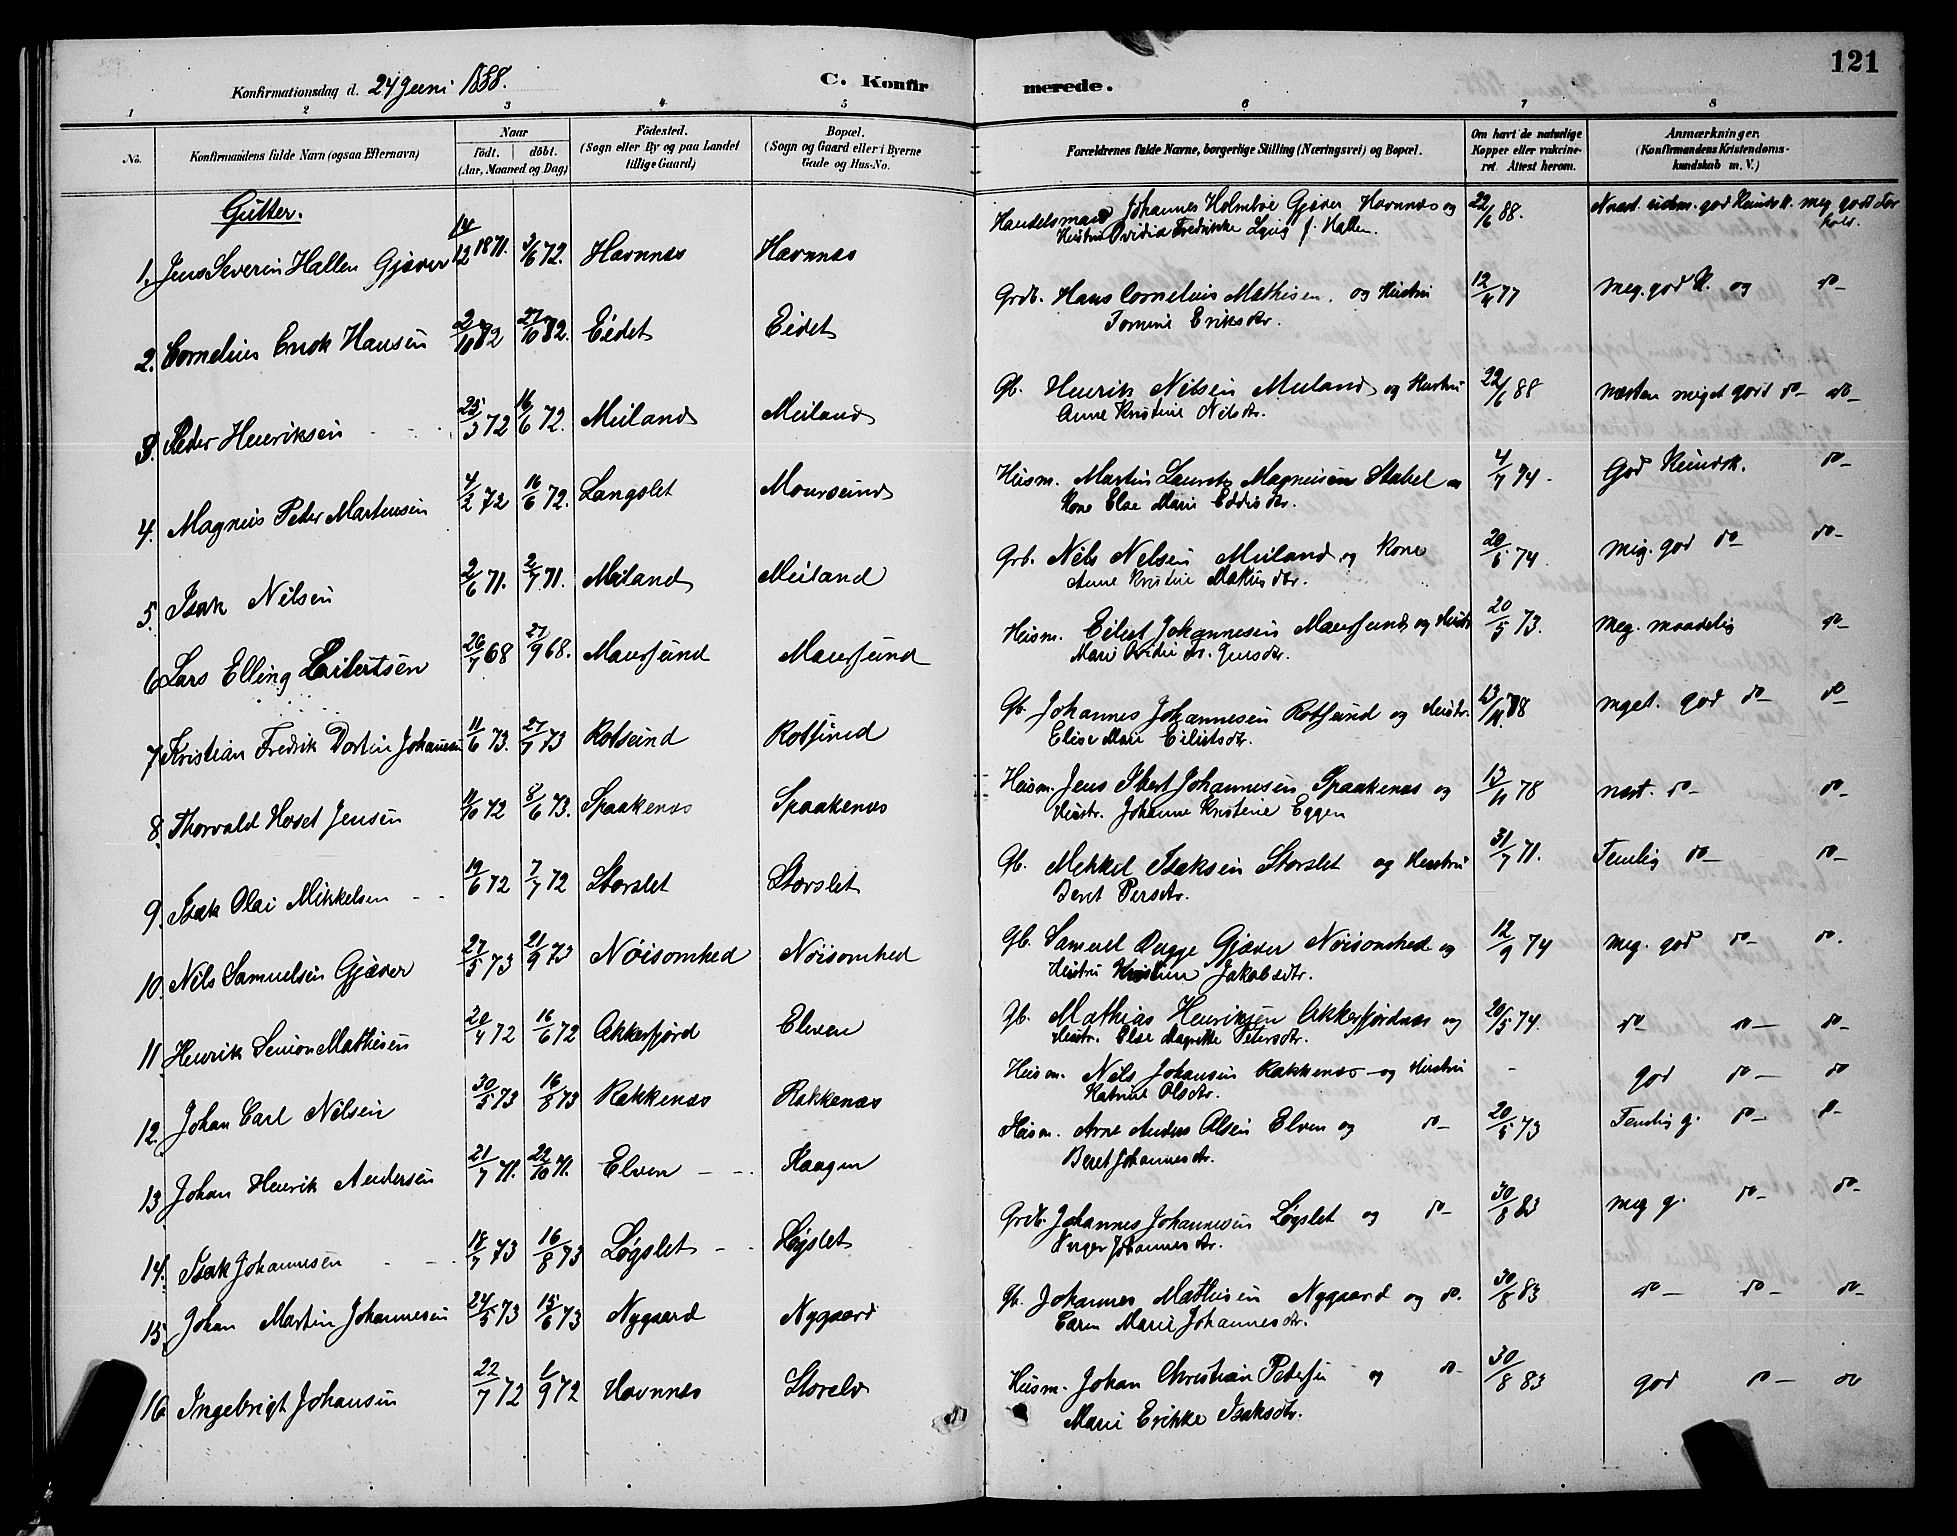 121
Konfirmationsdag d. 24 Juni 1888.
C. Konfirmerede.
1 2 3 4 5 6 7 8
No.
Konfirmandens fulde Navn (ogsaa Efternavn)
Naar
født. døbt.
(Aar, Maaned og Dag)
Födested.
(Sogn eller By og paa Landet
tillige Gaard)
Bopæl.
(Sogn og Gaard eller i Byerne
Gade og Hus-No.
Forældrenes fulde Navne, borgerlige Stilling (Næringsvei) og Bopæl.
Om havt de naturlige
Kopper eller vakcine-
ret. Attest herom.
Anmærkninger.
(Konfirmandens Kristendoms-
kundskab m. V.)
Gutter.
1. Jens Severin Hallen Gjæver 14/12 1871. 3/6 72. Havnnæs Havnnæs Handelsmand Johannes Holmboe Gjæver Havnnæs og 22/6 88.
Hustru Ovidia Fredrikke Lyng f. Hallen.
2. Cornelius Enok Hansen 2/10 82 27/6 82. Eidet Eidet Grdb. Hans Cornelius Mathisen og Hustru 12/4 77 meg. god K. og do-
Eriksdtr.
3. Peder Henriksen 25/3 72 16/6 72. Meiland Meiland Gb. Henrik Nilsen Meiland og Hustru 22/6 88 næsten meget god do- do-
Anne Kristine Nilsdtr.
4. Magnus Peder Martensen 4/2 72 16/6 72. Langslet Maursund Husm. Martin Lauritz Magnusen Stabel 4/7 74. God Kundsk. do-
Kone Else Marie
5. Isak Nilsen 2/6 71. 2/7 71. Meiland Meiland Grb. Nils Nilsen Meiland og Kone 20/5 74. meg. god do- do-
Anne Kristine
6. Lars Elling Eilertsen 26/7 68 27/9 68. Maursund Maursund Husm. Eilert Johannesen Maursund og Hustr 20/5 73. meg. maadelig do-
Marie Jensdtr.
7. Kristian Fredrik Johannesen 11/6 73. 27/7 73 Rotsund Rotsund Gb. Johannes Johannesen Rotsund og Hustr. meget god do- do-
Elise Marie Eilertsdtr.
8. Thorvald Jensen 11/10 72 8/6 73. Spaakenæs Spaakenæs Husm. Jens Johannesen Spaakenæs og 13/11 78 næst. do- do-
Hustr. Johanne Kristine Eggen
9. Isak Olai Mikkelsen 19/6 72 7/7 72 Storslet Storslet Gb. Mikkel Isaksen Storslet og Hustru 31/7 71. Temlig do- do-
Beret Persdtr.
10. Nils Samuelsen Gjæver 27/5 73 21/9 73 Nöisomhed Nöisomhed Gb. Samuel Gjæver Nöisomhed og 12/9 74 meg. god do- do.
Hustru Jakobsdtr.
11. Henrik Simon Mathisen 20/4 72 16/6 72 Akkerfjord Elven Gb. Mathias Henriksen og 20/5 74. do do- do-
Hustr. Else Magrethe Petersdtr.
12. Johan Carl Nilsen 30/5 73 16/8 73 Rakkenæs Rakkenæs Husm. Nils Johansen Rakkenæs og Hustru - god do- do
Olsdtr.
13. Johan Henrik Andersen 21/7 71. 22/10 71. Elven Kaagen Husm. Arne Anders Olsen Elven og do- 20/5 73 Temlig g. do- d-
Beret Johannesdtr.
14. Isak Johannesen 18/7 73 16/8 73 Løgslet Løgslet Grdb. Johannes Johannesen Løgslet og do- 30/8 83 meg g. do- do-
Inger Johannesdtr.
15. Johan Martin Johannesen 24/5 73 15/6 73 Nygaard Nygaard Gb. Johannes Mathisen Nygaard og do. 30/8 83 do- do- do-
Caren Marie Johannesdtr.
16. Ingebrigt Johansen 22/7 72 1/9 72 Havnnæs Storelv Husm. Johan Christian Petersen og do- 30/8 83 god do- do
Marie Erikke Isaksdtr.